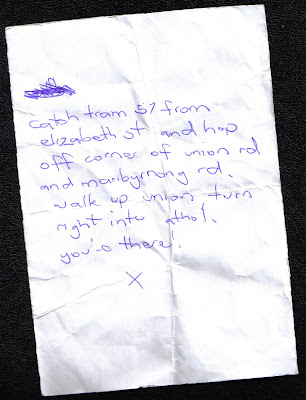 catch tram 57 from
elizabeth st and hop
off corner of union rd
and maribyrnong rd.
walk up union turn
right into athol.
you're there.
X